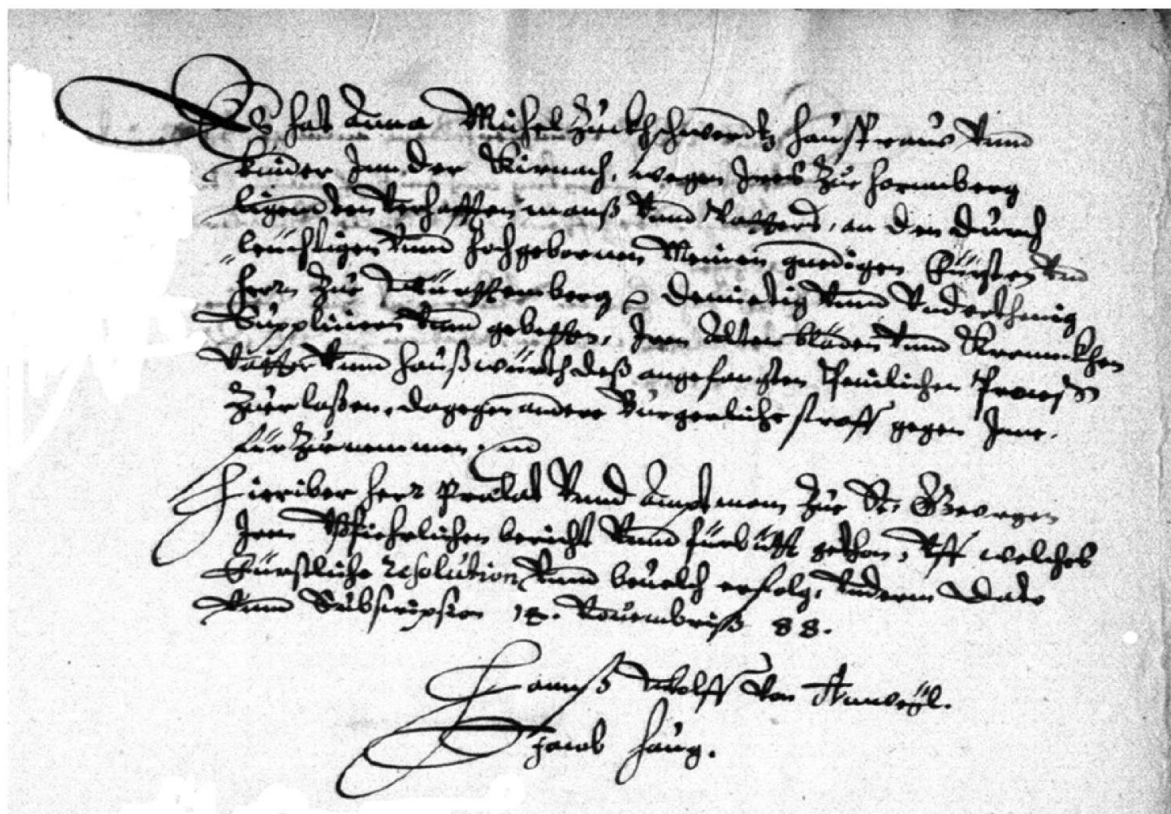 Es hat Anna Michel Zuckhschwerdtz haussfraw Vnnd
Kinder Inn der Kirnach, wegen Ires Zue Hornnberg
ligenden Verhafften manß Vnnd Vatters, an den durch
leüchtigen Vnnd Hochgebornen Meinen gnedigen Fürsten Vnd
Herrn Zue Württemberg p demietig Vnnd Vnderthenig
Suppliciern Vnnd gebetten, Iren Alten blöden Vnnd Krannckhen
Vatter Vnnd Haußwürth deß angefangten Peinlichen Proceß
Zuerlaßen, dagegen andere Burgerliche straff gegen Ime
für Zunemmen
Hierüber herr Prälat Vnnd Amptmann Zue St. Georgen
Iren Vßfüehrlichen bericht Vnnd fürbütt gethon, Vff welches
Fürstliche resolution Vnnd beuelch erfolg, Vnderm Dato
Vnnd Subscription 18. Nouembriß 88.
Hannß Wolff Von Annweyl.
Jacob Haug.